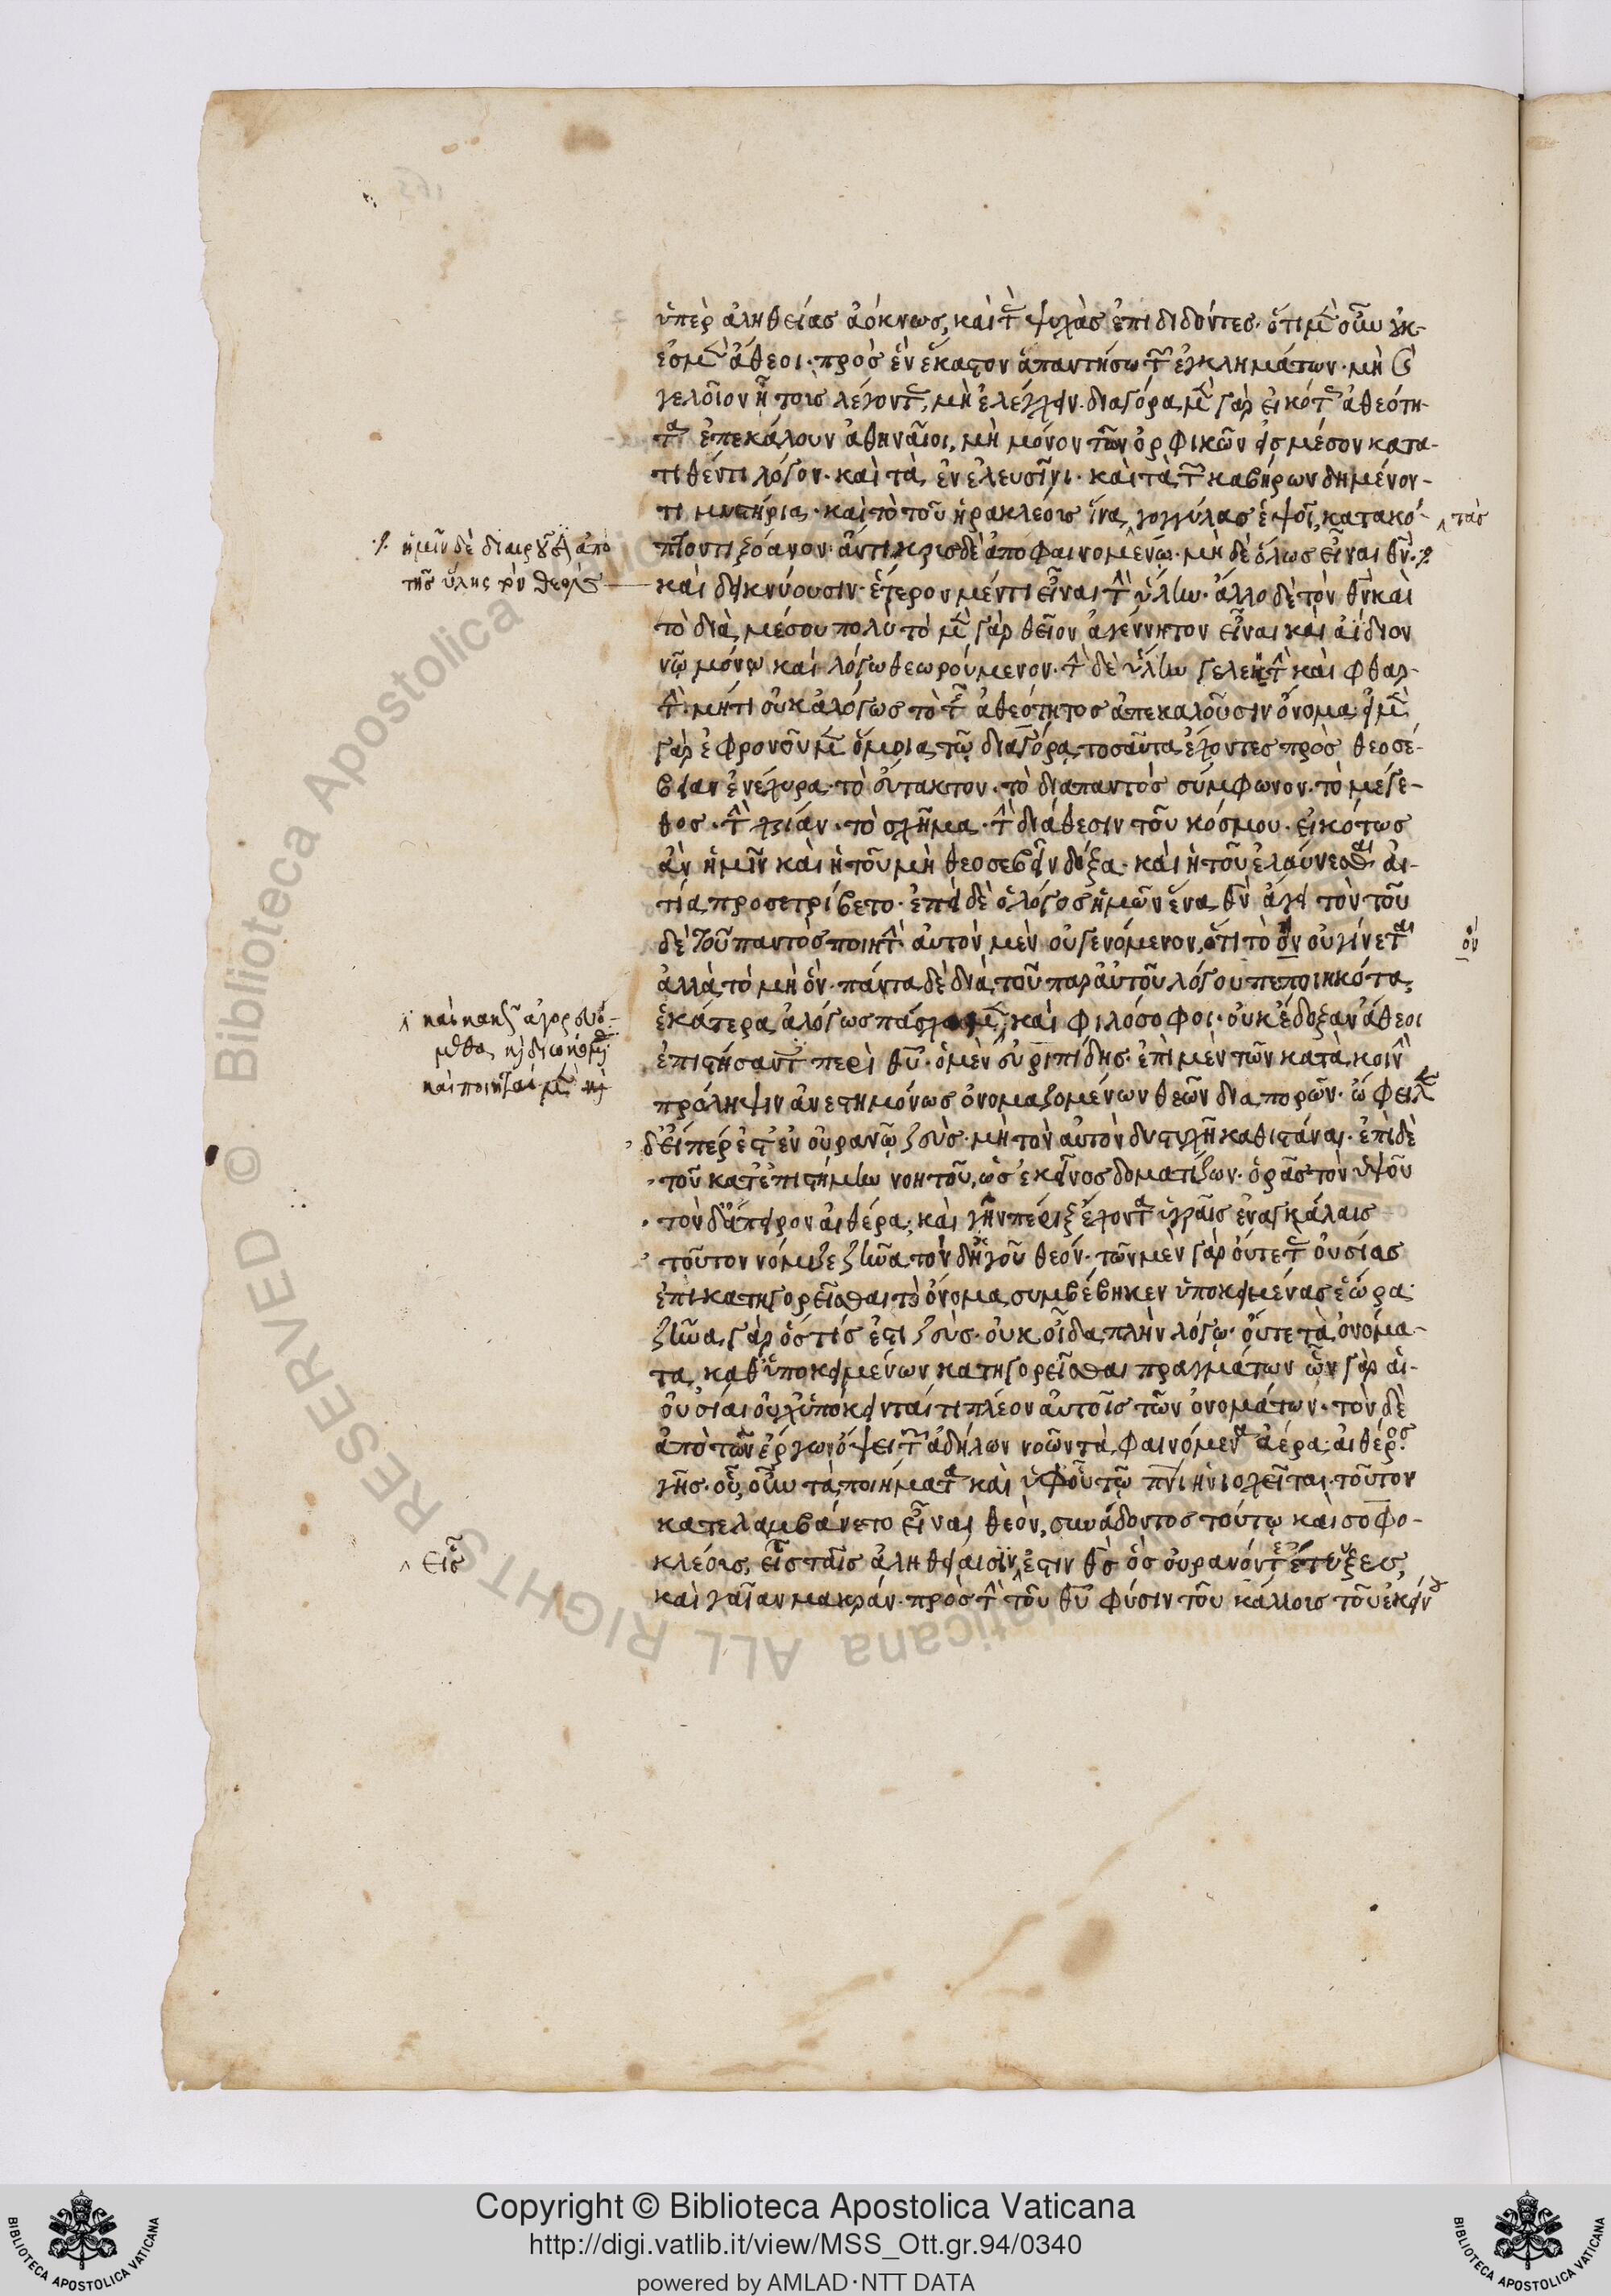 ὑπὲρ ἀληθείας ἀόκνως, καὶ τ̀ ψυχὰς ἐπιδιδόντες· ὅτι μ̀ οὖν οὐκ
ἐσμ̀ ἄθεοι· πρὸς ἓν ἕκαστον ἀπαντήσω τ̃ ἐγκλημάτων· μὴ
γελοῖον ᾖ τοὺς λέγοντ, μὴ ἐλέγχειν· διαγόρα μ̀ γὰρ εἰκότ ἀθεότη-
τα ἐπεκάλουν ἀθηναῖοι, μὴ μόνον τὸν ὀρφικὸν εἰς μέσον κατα-
τιθέντι λόγον· καὶ τὰ ἐν ἐλευσῖνι· καὶ τὰ τ̃ καβήρων δημένον-
τι μυστήρια· καὶ τὸ τοῦ ἡρακλέους ἵνα γογγύλας ἑψοῖ, κατακό-
τὰς
πτοντι ξόανον· ἄντικρυς δὲ ἀποφαινομένῳ· μὴ δὲ ὅλως εἶναι θν̄·
ἡμῖν δὲ διαιροῦσιν ἀπὸ
τῆς ὕλης τὸν θεὸν
καὶ δεικνύουσιν· ἕτερον μέντι εἶναι τ̀ ὕλην· ἄλλο δὲ τὸν θν̄ καὶ
τὸ διὰ μέσου πολὺ τὸ μ̀ γὰρ θεῖον ἀγέννητον εἶναι καὶ ἀΐδιον
νῷ μόνῳ καὶ λόγω θεωρούμενον· τ̀ δὲ ὕλην γενητ̀ καὶ φθαρ-
τ̀· μήτι οὐκ ἀλόγως τὸ τ̃ ἀθεότητος ἀπεκαλοῦσιν ὄνομα· εἰ μ̀
γὰρ ἐφρονοῦμ ὅμοια τῷ διαγόρα, τοσαῦτα ἔχοντες πρὸς θεοσέ-
βειαν ἐνέχυρα· τὸ εὔτακτον· τὸ διαπαντὸς σύμφωνον· τὸ μέγε-
θος· τ̀ χροιάν· τὸ σχῆμα· τ̀ διάθεσιν τοῦ κόσμου· εἰκότως
ἂν ἡμῖν καὶ ἡ τοῦ μὴ θεοσεβεῖν δόξα· καὶ ἡ τοῦ ἐλαύνεσθαι αἰ-
τία προσετρίβετο· ἐπεὶ δὲ ὁ λόγος ἡμῶν ἕνα θν̄ ἄγει τὸν τοῦ
δὲ τοῦ παντὸς ποιητ̀· αὐτὸν μὲν οὐ γενόμενον, ὅτι τὸ ὂν οὐ γίνεται
ὂν
ἀλλὰ τὸ μὴ ὄν· πάντα δὲ διὰ τοῦ παρ' αὐτοῦ λόγου πεποιηκότα
ἑκάτερα ἀλόγως πάσχομ, καὶ φιλόσοφοι· οὐκ ἔδοξαν ἄθεοι
καὶ κακῶς ἀγορευό-
μεθα, καὶ διωκόμεθα
καὶ ποιηταὶ μ̀ καὶ
ἐπιστήσαντ περὶ θῡ· ὁ μὲν εὐριπίδης· ἐπὶ μὲν τῶν κατὰ κοιν̀
πρόληψιν ἀνεστημόνως ὀνομαζομένων θεῶν διαπορῶν· ὤφειλ
δ' εἴπερ ἔστ' ἐν οὐρανῷ ζεὺς· μὴ τὸν αὐτὸν δυστυχῆ καθιστάναι· ἐπὶ δὲ
τοῦ κατ' ἐπιστήμην νοητοῦ, ὡς ἐκεῖνος δοματίζων· ὁρᾷς τὸν ὑψοῦ
τὸν δ' ἄπειρον αἰθέρα· καὶ γῆν πέριξ ἔχοντα ὑγραῖς ἐν ἀγκάλαις
τοῦτον νόμιζε ζῆνα τὸν δ' ἡγοῦ θεόν· τῶν μὲν γὰρ οὔτε τ̀ οὐσίας
ἐπικατηγορεῖσθαι τὸ ὄνομα συμβέβηκεν ὑποκειμένας ἑώρα·
ζῆνα γὰρ ὅστίς ἐστι ζεὺς· οὐκ οἶδα πλὴν λόγῳ· οὔτε τὰ ὀνόμα-
τα καθ' ὑποκειμένων κατηγορεῖσθαι πραγμάτων ὧν γὰρ αἱ
οὐσίαι οὐχ ὑπόκεινται τι πλέον αὐτοῖς τῶν ὀνομάτων· τὸν δὲ
ἀπὸ τῶν ἔργων ὄψει τ̃ ἀδήλων νοῶν τὰ φαινόμενα ἀέρα· αἰθέρος
γῆς· οὗ οὖν τὰ ποιήματα καὶ ὑφ' οὗ τῷ πνῑ ἡνιοχεῖται· τοῦτον
κατελαμβάνετο εἶναι θεὸν, συνάδοντος τούτῳ καὶ σοφο-
κλέους, εἷς ταῖς ἀληθείαισιν, ἐστιν θς̄ ὃς οὐρανόν τ' ἔτευξεν,
εἷς
καὶ γαῖαν μακράν· πρὸς τ̀ τοῦ θῡ φύσιν τοῦ κάλλους τοῦ ἐκείνου
Copyright © Biblioteca Apostolica Vaticana
http://digi.vatlib.it/view/MSS_Ott.gr.94/0340
powered by AMLAD·NTT DATA